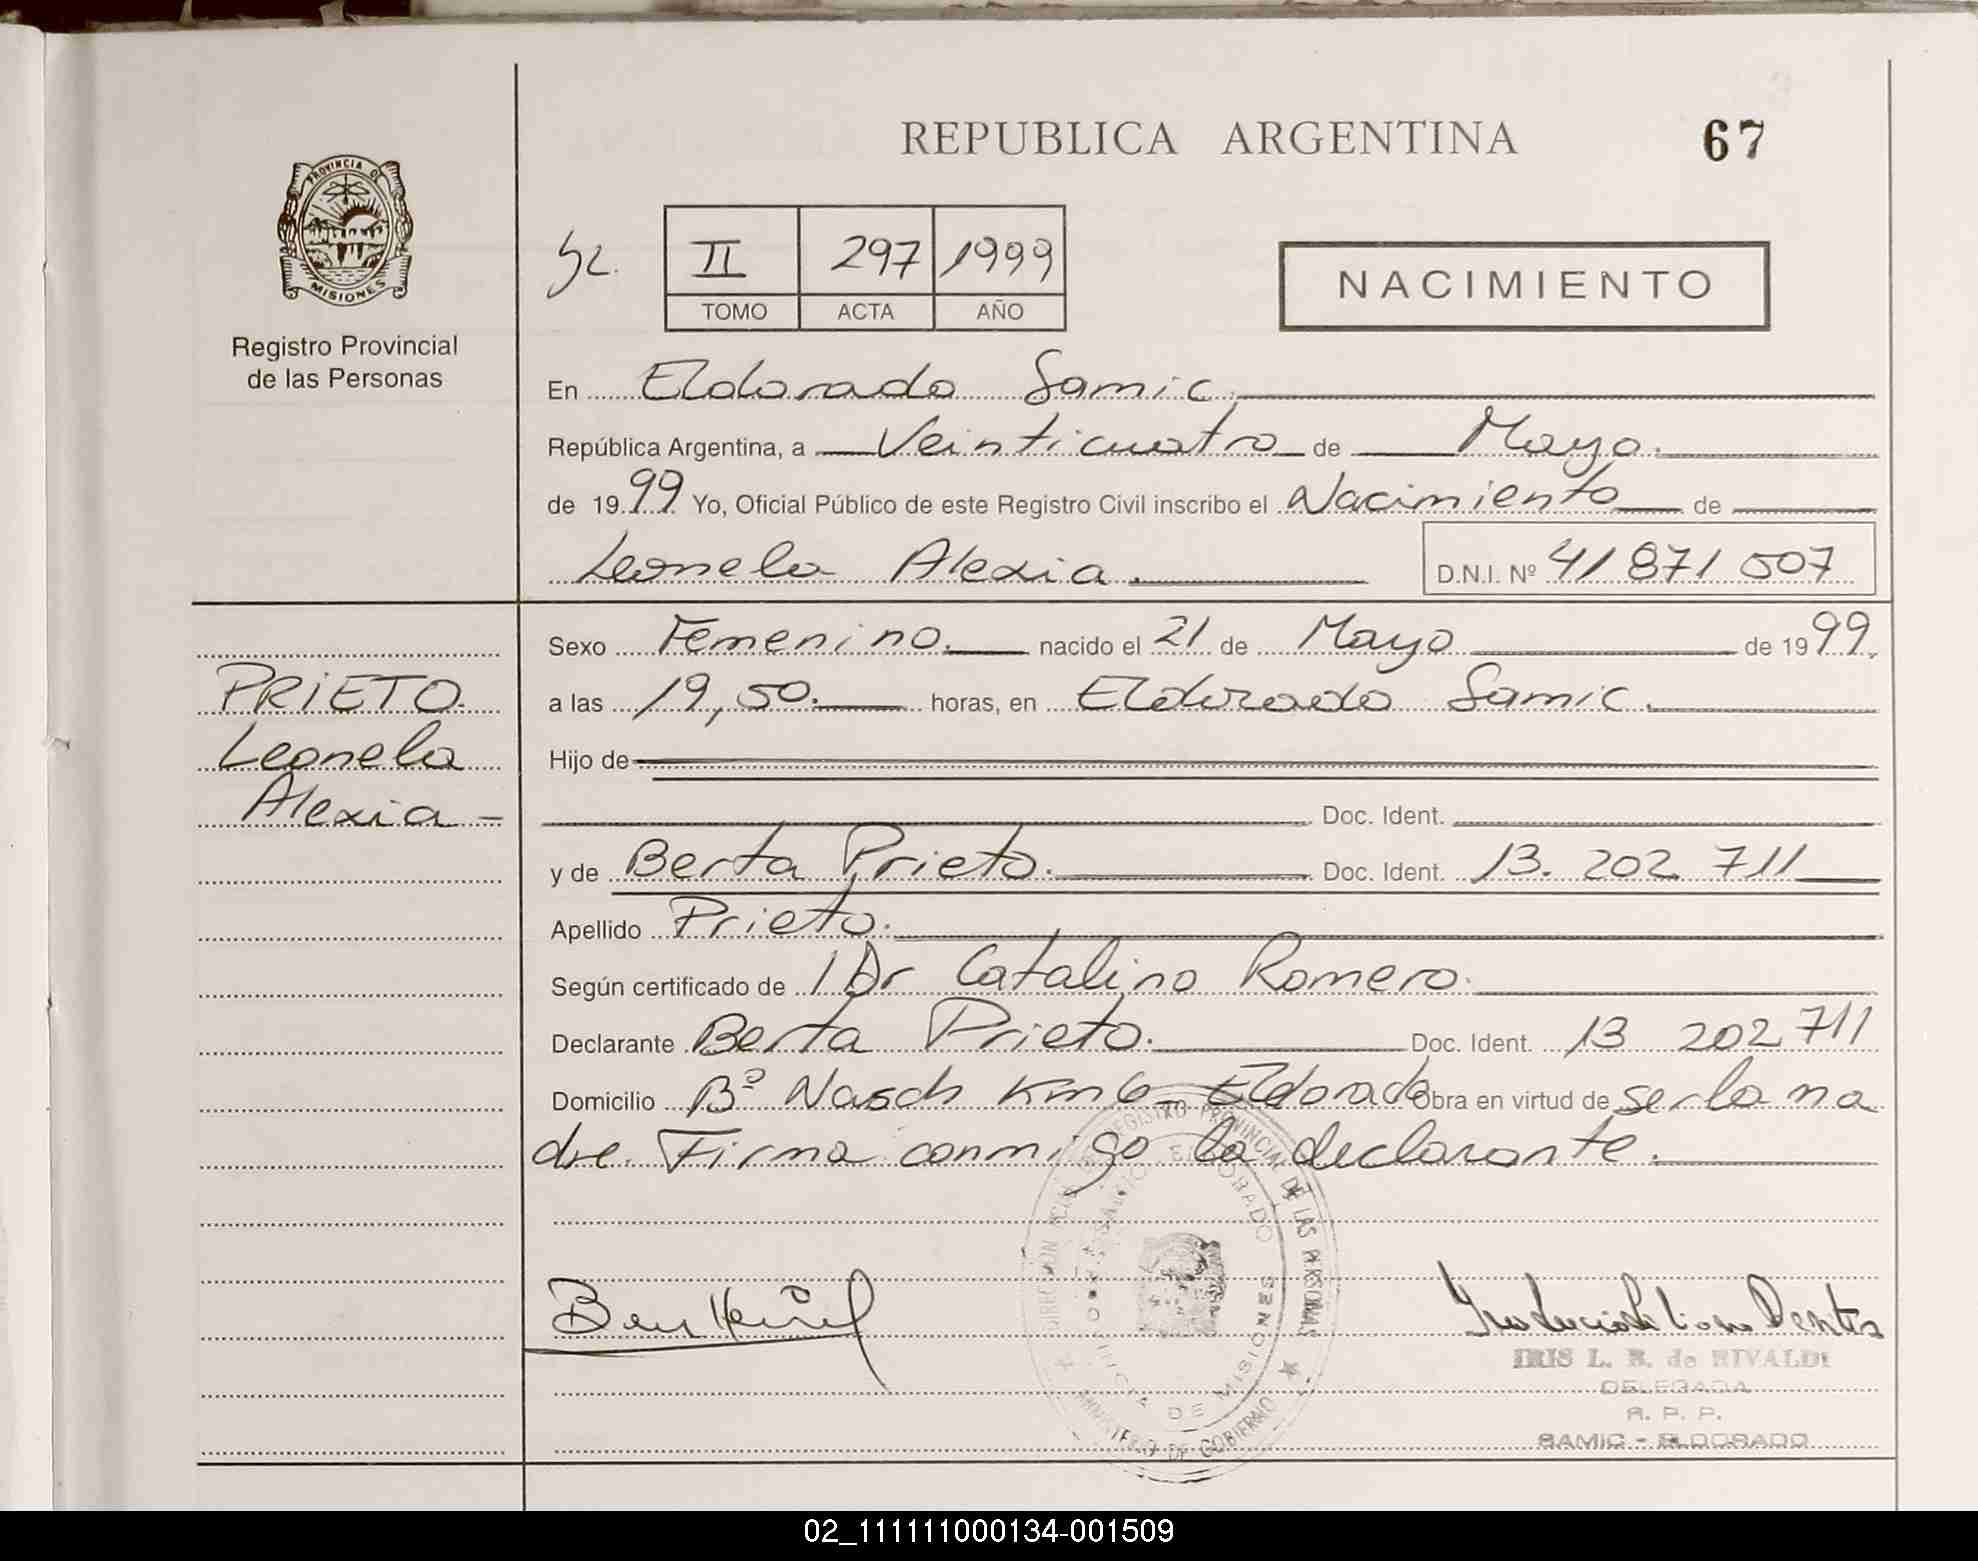 REPUBLICA ARGENTINA
67
PROVINCIA DE
MISIONES
Registro Provincial
de las Personas
II 297 1999
TOMO ACTA AÑO
NACIMIENTO
En Eldorado Samic.
República Argentina, a Veinticuatro de Mayo.
de 1999 Yo, Oficial Público de este Registro Civil inscribo el Nacimiento de
Leonela Alexia. D.N.I. Nº 41 871 507
PRIETO.
Leonela
Alexia -
Sexo Femenino. nacido el 21 de Mayo de 1999.
a las 19,50. horas, en Eldorado Samic.
Hijo de
Doc. Ident.
y de Berta Prieto. Doc. Ident. 13.202 711
Apellido Prieto.
Según certificado de 1 Dr Catalino Romero.
Declarante Berta Prieto. Doc. Ident. 13 202 711
Domicilio Bº Nasch Km 6 - Eldorado Obra en virtud de ser la ma
dre. Firma conmigo la declarante.
REGISTRO PROVINCIAL DE LAS PERSONAS
MINISTERIO DE GOBIERNO
ELDORADO
DE MISIONES
IRIS L. B. de RIVALDI
DELEGADA
R. P. P.
SAMIC - ELDORADO
02_111111000134-001509